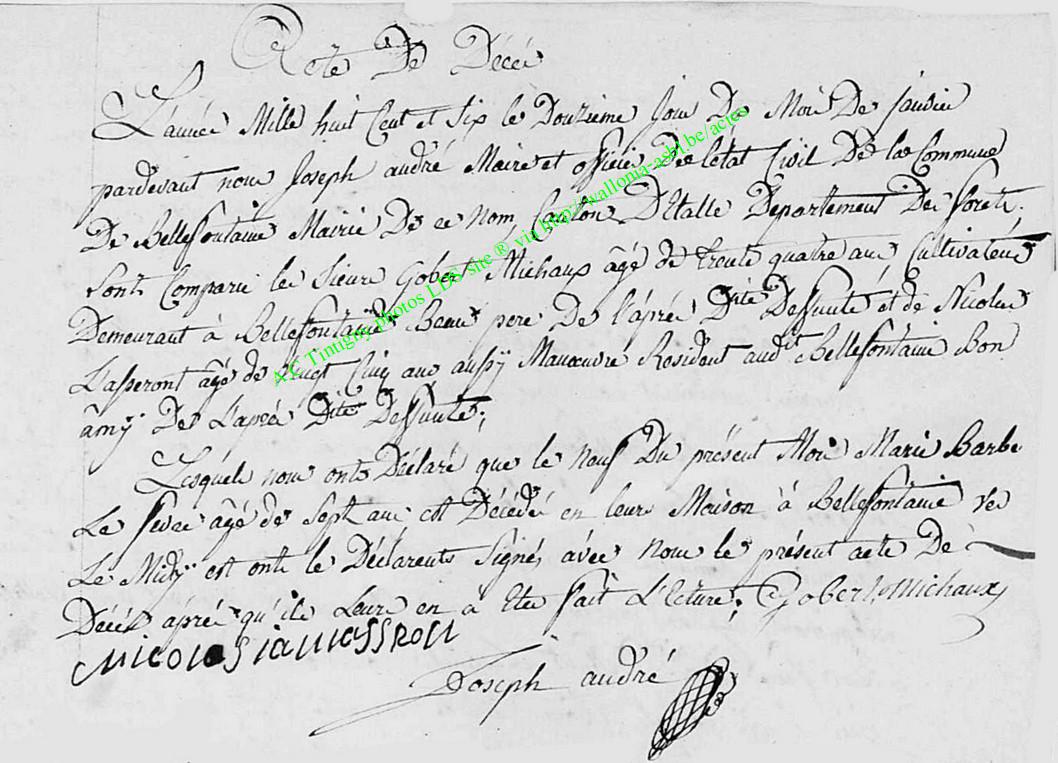 Acte De Décéé
L'année Mille huit Cent et Six le Douzieme Jour De Moi De janvie
pardevant nous Joseph andré Maire et officié De létat Civil De la Commune
De Bellefontaine Mairie De ce Nom, Canton D'Etalle Departement De foret,
sont Comparu les sieure Gobert Michaux âgé de trente quatre ans Cultivateur
Demeurant à Bellefontaine Beau pere De l'apreé Dite Deffunte et de Nicolas
âgé de vingt Cinq ans aussÿ Manoeuvre Resident audit Bellefontaine Bon
âmÿ De L'apreé Dite Deffunte;
Lesquels nous onts Déclaré que le Neuf Du présent Moi Marie Barbe
Le âgé de Sept ans est Décédé en leurs Maison à Bellefontaine ver
Le Midÿ est onts le Déclarents Signé, avec Nous le présent acte De
Décés âpré qu'ils Leurs en a Eter fait L'Ecture; Gobert Michaux
Nicolas
Joseph andré
A.E Tintigny photos LDS site ® via http://wallonia-asbl.be/actes